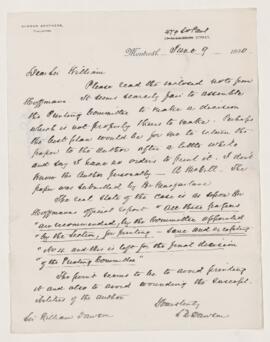 DAWSON BROTHERS,
Montreal, June 9 1890
Dear Sir William
Please read the enclosed note from
Hoffmann. It seems scarcely fair to assemble
the Printing Committee to make a decision
which is not properly theirs to make. Perhaps
the best plan would be for me to return the
paper to the Author after a little while
and say I have no orders to print it. I don't
know the Author personally — A McGill. The
paper was submitted by Dr Macfarlane
The real state of the case is as
Hoffmann's official report "All these papers
are recommended, by the Committee appointed
by the Section, for printing — save and excepting
No 4 and this is left for the final decision
of the Printing Committee"
The point seems to be to avoid printing
it and also to avoid wounding the suscept-
ibilities of the author.
Sir William Dawson
S E Dawson